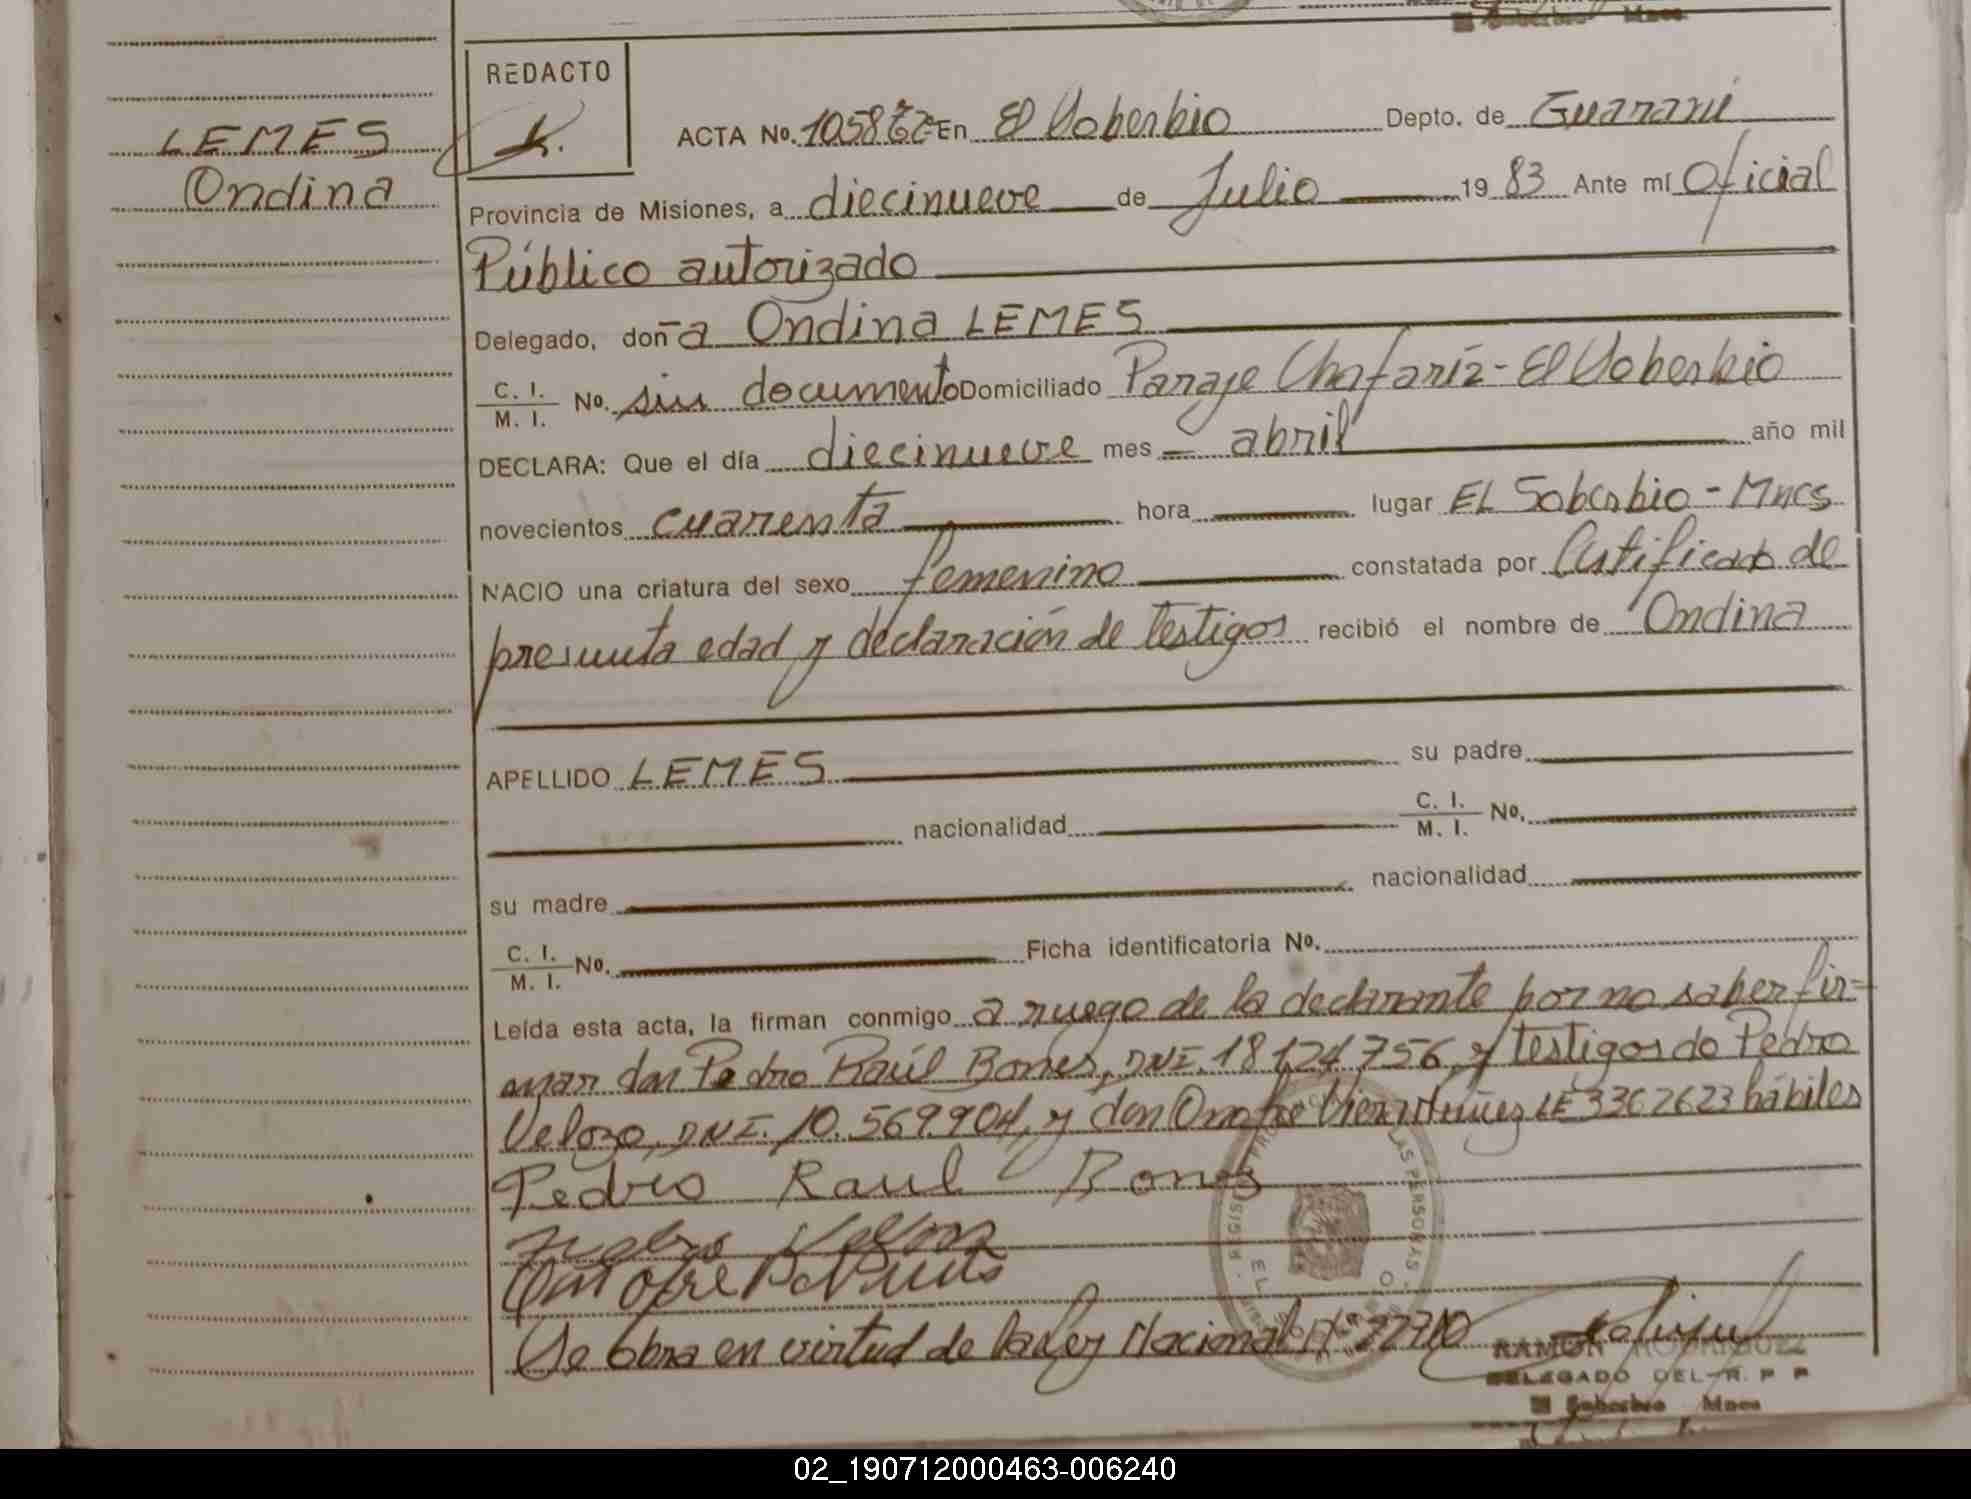 El Soberbio Mnes.
REDACTO
LEMES
Ondina
ACTA No. En El Soberbio Depto. de Guaraní
Provincia de Misiones, a diecinueve de Julio 1983 Ante mí Oficial
Público autorizado
Delegado, doña Ondina LEMES
C. I.
M. I. No. sin documento Domiciliado Paraje Chafaríz - El Soberbio
DECLARA: Que el día diecinueve mes abril año mil
novecientos cuarenta hora lugar EL Soberbio - Mnes
NACIO una criatura del sexo femenino constatada por Certificado de
presunta edad y declaración de testigos recibió el nombre de Ondina
APELLIDO LEMES su padre
nacionalidad C. I.
M. I. No.
su madre nacionalidad
C. I.
M. I. No. Ficha identificatoria No.
Leída esta acta, la firman conmigo a ruego de la declarante por no saber fir=
mar don Pedro Raúl Bones, DNI. 18124.756, y testigos do Pedro
Velozo, DNI. 10.569.904, y don Onofre LE 3362623 hábiles
Pedro Raul Bones
Pedro Veloso
Onofre
Se obra en virtud de la Ley Nacional Nº 22710
RAMON RODRIGUEZ
DELEGADO DEL R. P P
El Soberbio Mnes
02_190712000463-006240